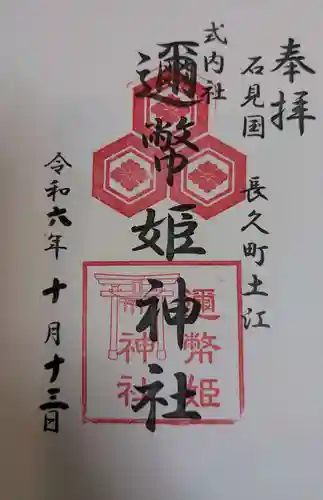 奉拝
石見国 長久町土江
式内社
邇幣姫神社
令和六年十月十三日
邇幣姫
神社